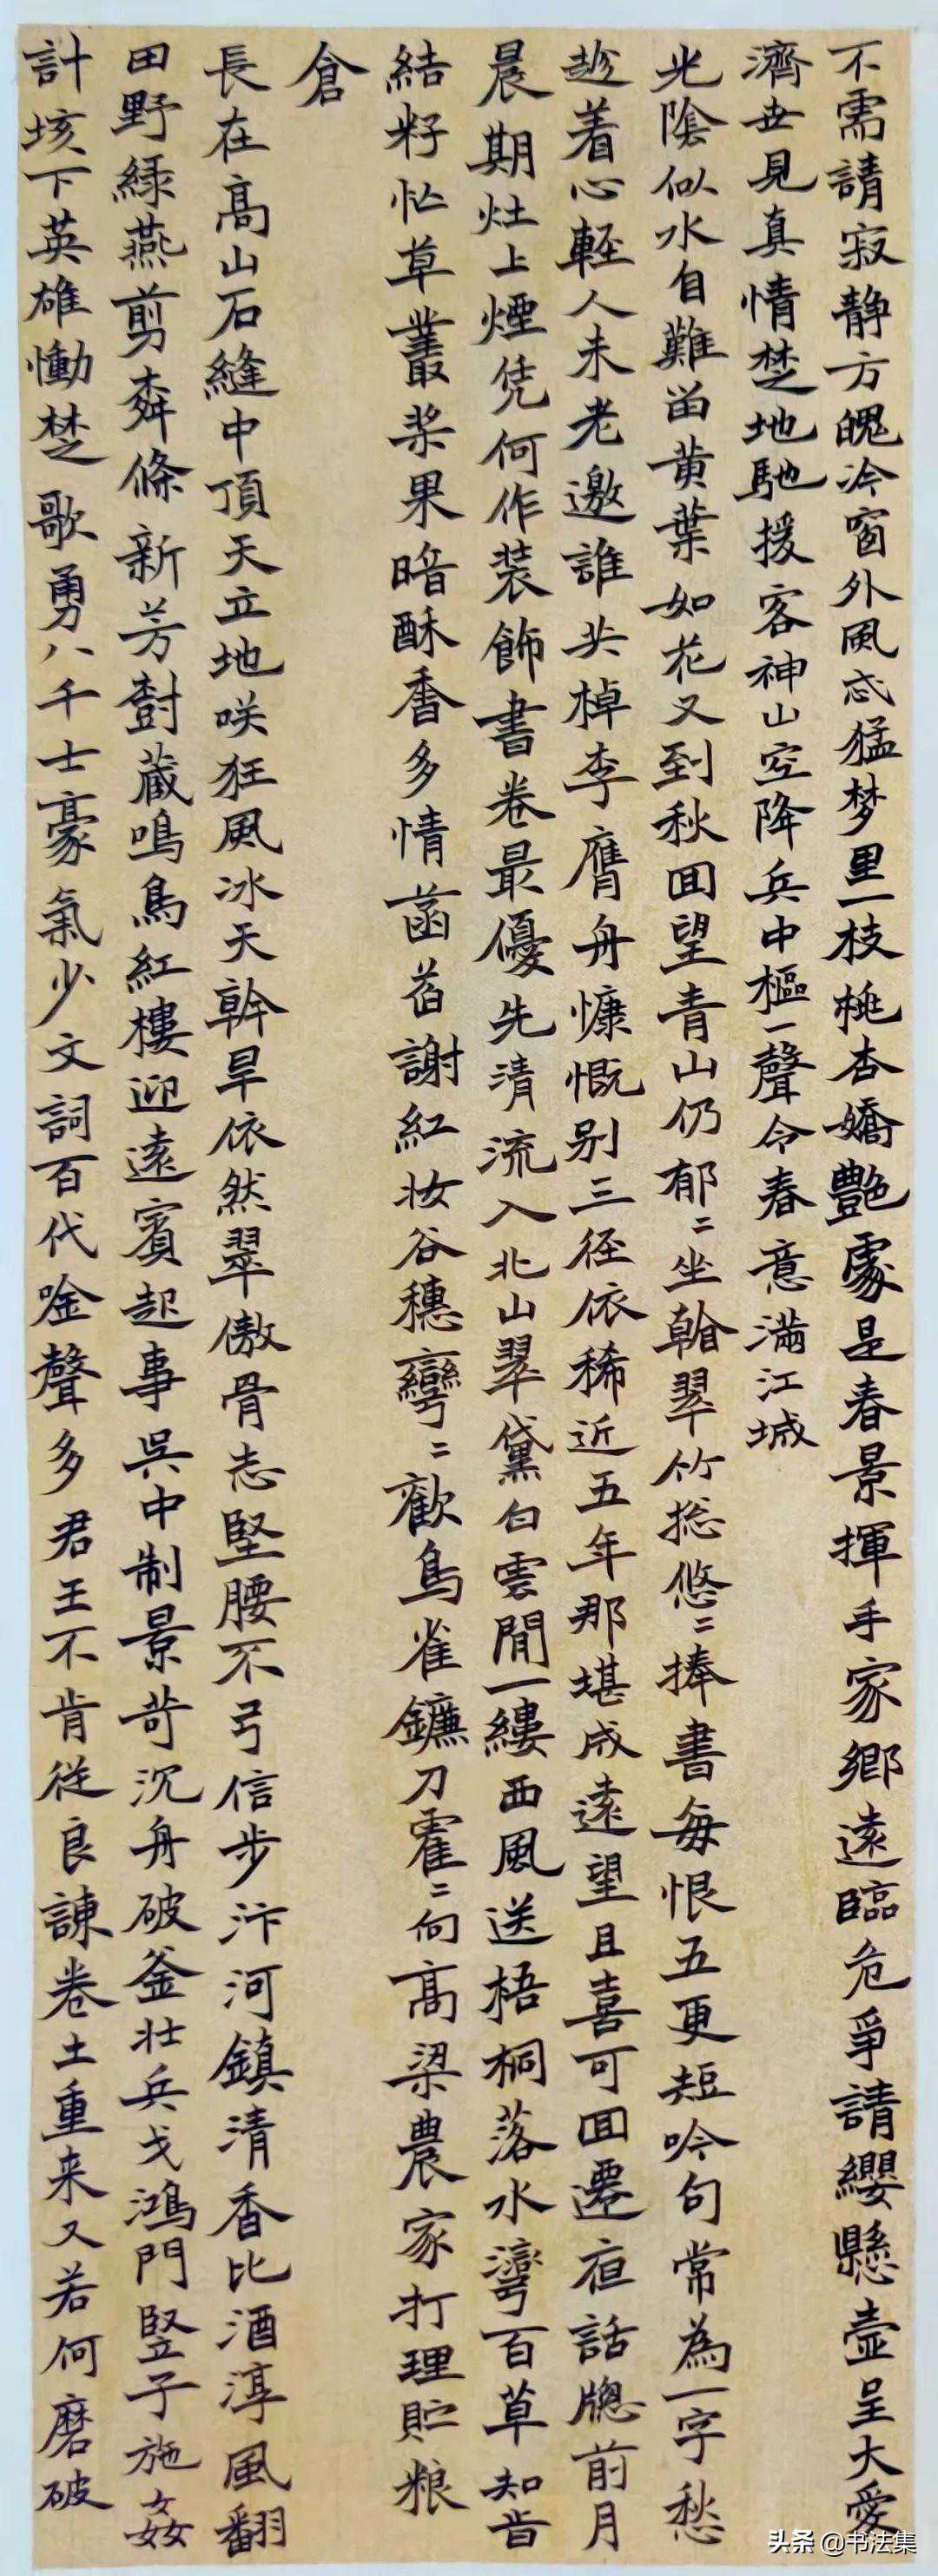 不需請寂静方魄冷窗外風忒猛梦里一枝桃杏嬌艷處是春景揮手家鄉遠臨危爭請纓懸壺呈大愛
濟世見真情楚地馳援客神山空降兵中樞一聲令春意滿江城
光陰似水自難留黄葉如花又到秋回望青山仍郁二坐翰翠竹捴悠二捧書每恨五更短吟句常為一字愁
趁着心輕人未老邀誰共棹李膺舟慷慨别三径依稀近五年那堪成遠望且喜可回遷夜話牕前月
晨期灶上煙凭何作装飾書卷最優先清流入北山翠黛白雲閒一縷西風送梧桐落水灣百草知音
結籽忙草叢浆果暗酥香多情菡萏謝紅妝谷穗彎二歡鳥雀鐮刀霍二向高梁農家打理貯粮
倉
長在高山石縫中頂天立地咲狂風冰天幹旱依然翠傲骨志堅腰不弓信步汴河鎮清香比酒淳風翻
田野緑燕剪柰條新芳樹蔵鳴鳥紅樓迎遠賓起事吳中制景苛沉舟破釜壮兵戈鴻門竪子施姦
計垓下英雄慟楚歌勇八千士豪氣少文詞百代唫聲多君王不肯從良諫卷土重来又若何磨破
头条 @书法集